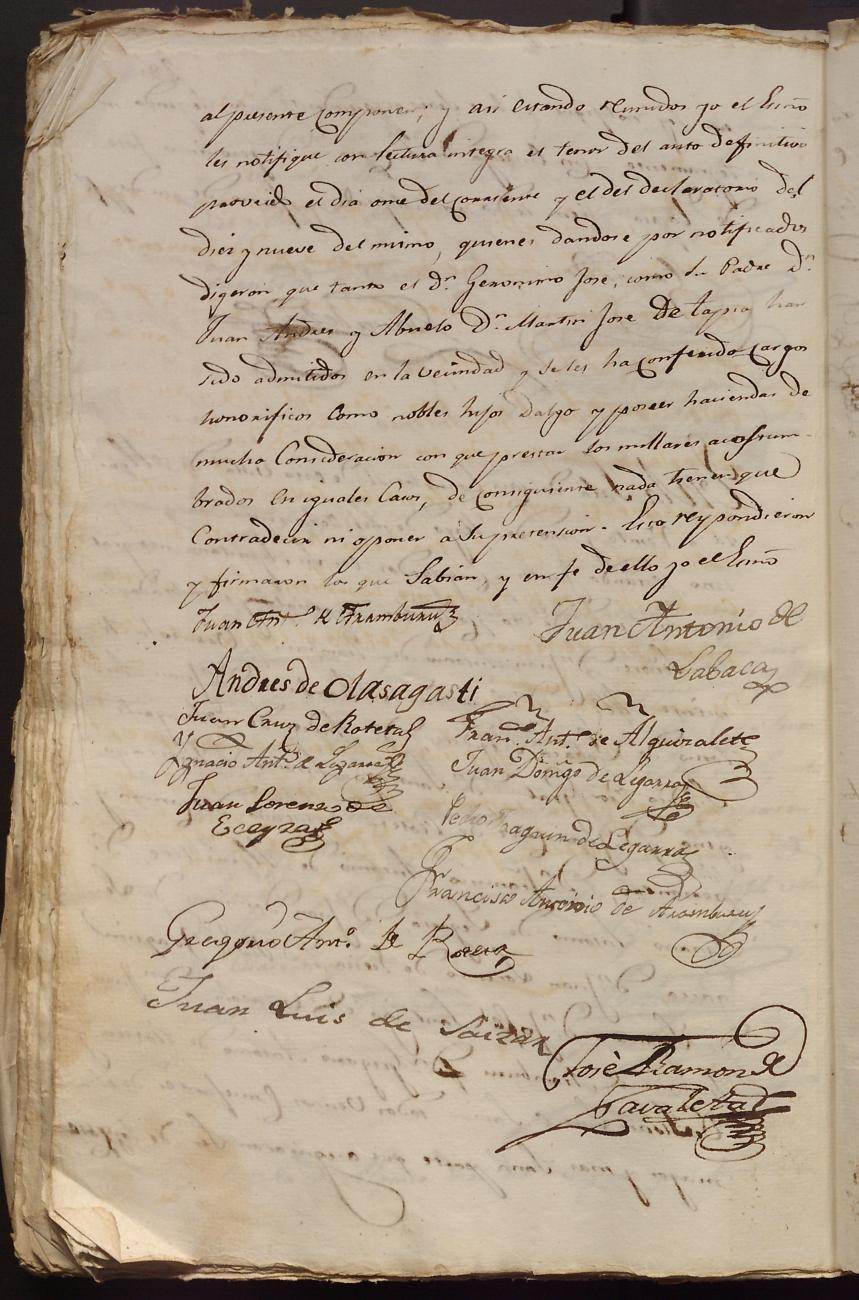 al presente componen; y asi estando reunidos yo el Esno
les notifiqué con lectura integra el tenor del auto definitivo
proveido el dia once del corriente y el del declaratorio del
diez y nueve del mismo, quienes dandose por notificados
digeron, que tanto el Dn Geronimo José, como su Padre Dn
Juan Andres y Abuelo Dn Martin José de Tapia han
sido admitidos en la vecindad y se les ha conferido cargos
honorificos como nobles hijos dalgo y poseer haciendas de
mucha Consideracion con que prestar los millares acostum-
brados en iguales Casos, de consiguiente nada tienen que
Contradecir ni oponer á su pretension. Esto respondieron
y firmaron los que Sabian, y en fe de ello yo el Esno
Juan Anto de Aramburu
Juan Antonio de
Labaca
Andres de Olasagasti
Juan Cruz de Roteta
Franco Anto de Alquizalete
Ygnacio Anto de Legarra
Juan Domgo de Legarra
Juan Lorenzo de
Eceyza
Pedro Joaquin de Legarra
Francisco Antonio de Aramburu
Gregorio Anto de Roteta
Juan Luis de
José Ramon de
Zavaleta